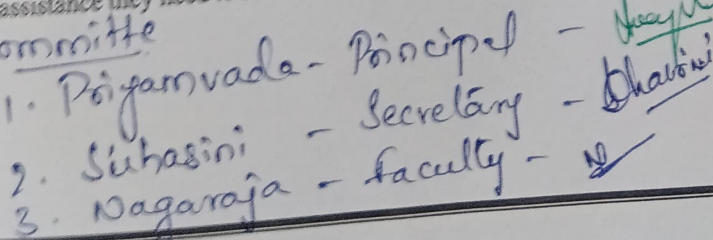 assistance they need
ommitte
1. Priyamvada - Principal -
2. Suhasini - Secretary - Bhavani
3. Nagaraja - faculty -